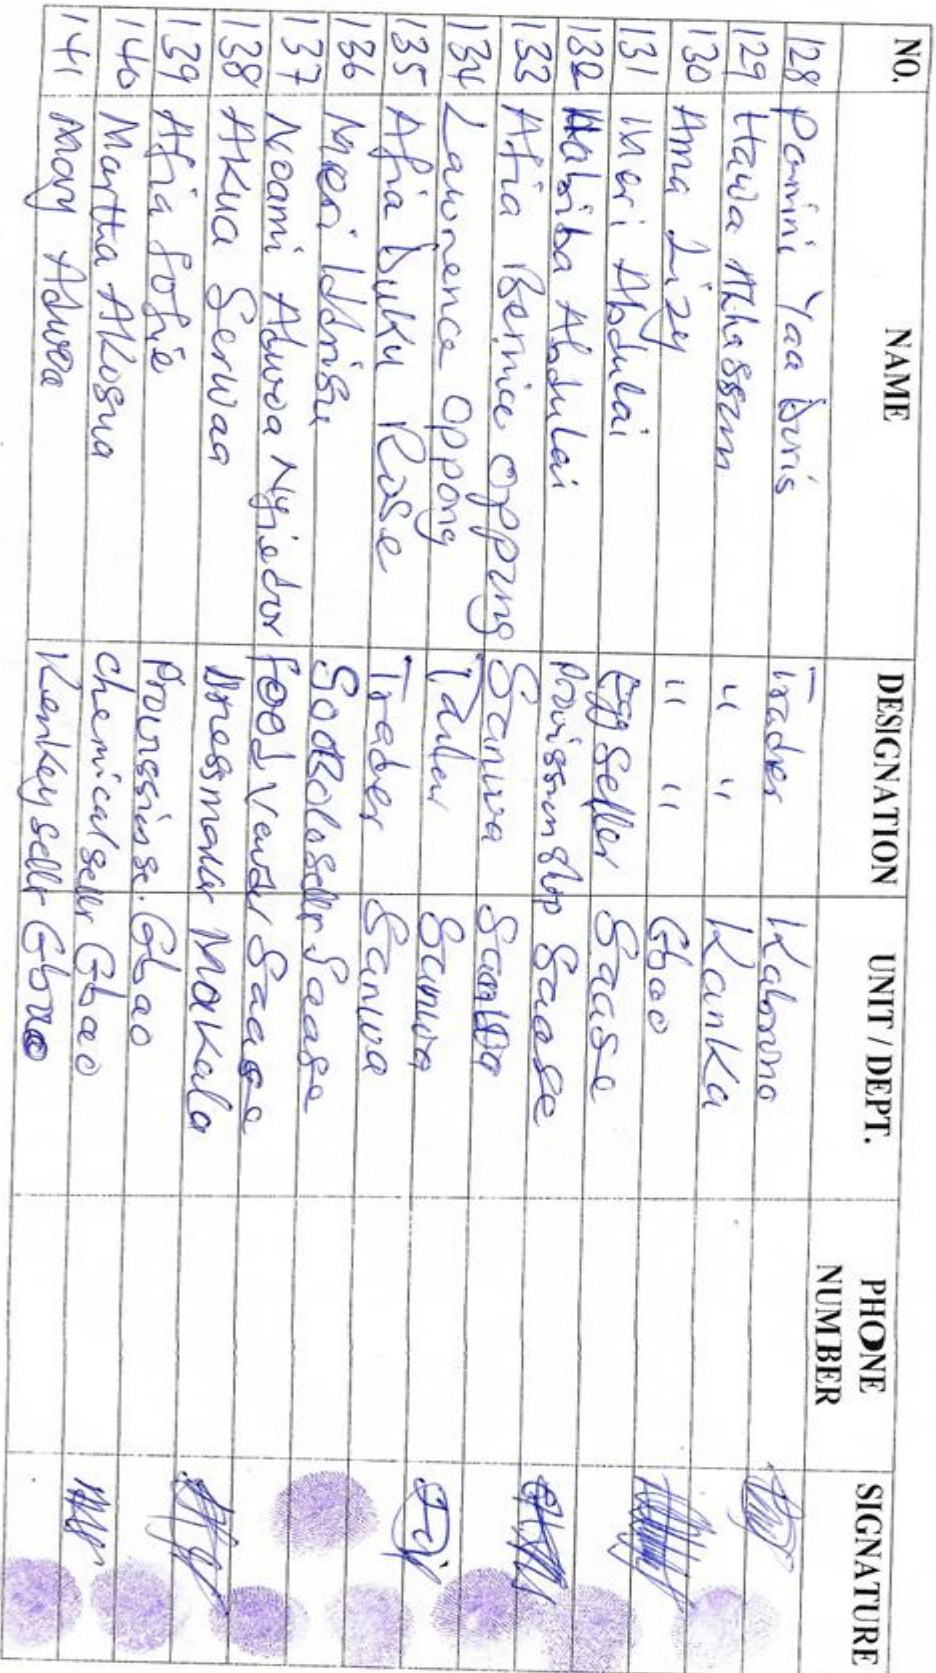 NO. NAME DESIGNATION UNIT / DEPT. PHONE NUMBER SIGNATURE
128 Yaa Doris Trader
129 Hawa " " Kanka
130 Ama Lizy " " Gbao
131 Meri Abdulai Egg Seller Saase
132 Habiba Abdulai Provission Shop Saase
133 Afia Bernice Oppong Sanwa Sanwa
134 Lawrence Oppong Tailer Sanwa
135 Afia Duku Rose Trader Sanwa
136 Meri Iddrisu SoBolo seller Saase
137 Noami Adwoa Nyiedor food Vender Saase
138 Akua Serwaa Dressmaker Makala
139 Afia Sofie Gbao
140 Martha Akosua chemical seller Gbao
141 Mary Adwoa Kenkey seller Gbao